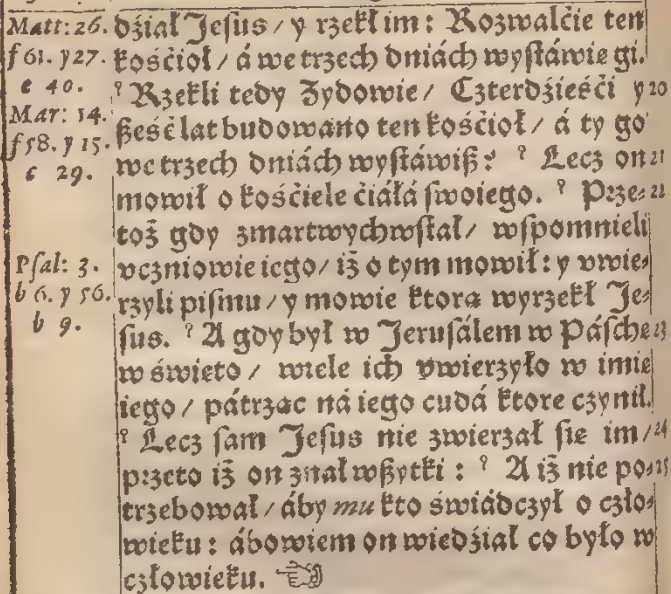 Matt: 26.
f 61. y 27.
e 40.
Mar: 14.
f 58. y 15.
c 29.
Psal: 3.
b 6. y 56.
b 9.
dźiał Jeſus / y rzekł im : Rozwalćie ten
kośćioł / á we trzech dniách wyſtáwie gi.
Rzekli tedy Zydowie / Czterdźieśći y 20
ßeść lat budowano ten kośćioł / á ty go
we trzech dniách wyſtáwiß : Lecz on 21
mowił o kośćiele ćiáłá ſwoiego. Prze⸗ 22
toż gdy zmartwychwſtał / wſpomnieli
vczniowie iego / iż o tym mowił : y vwie⸗
rzyli piſmu / y mowie ktora wyrzekł Je⸗
ſus. A gdy był w Jeruſálem w Páſche 23
w święto / wiele ich vwierzyło w imie
iego / pátrzac ná iego cudá ktore czynił.
Lecz ſam Jeſus nie zwierzał ſie im / 24
przeto iż on znał wßytki : A iż nie po⸗ 25
trzebował / áby mu kto świádczył o czło⸗
wieku : ábowiem on wiedźiał co było w
człowieku. ☜